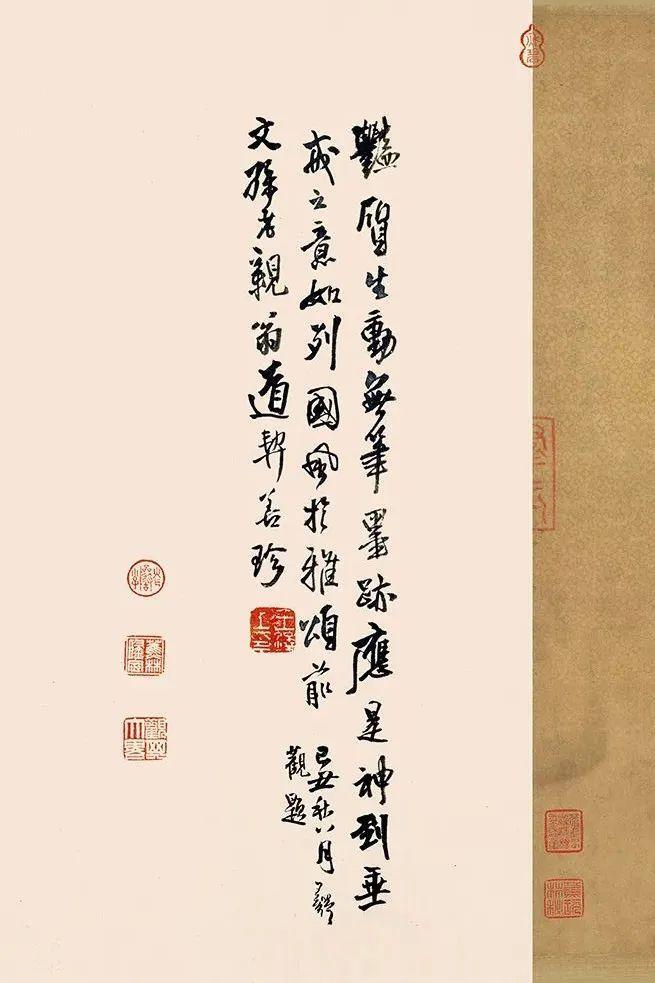 豔質生動無筆墨跡應是神到垂
戒之意如列國風於雅頌前
己丑秋八月鐸
觀題
文孫老親翁道契善珍
王鐸之印